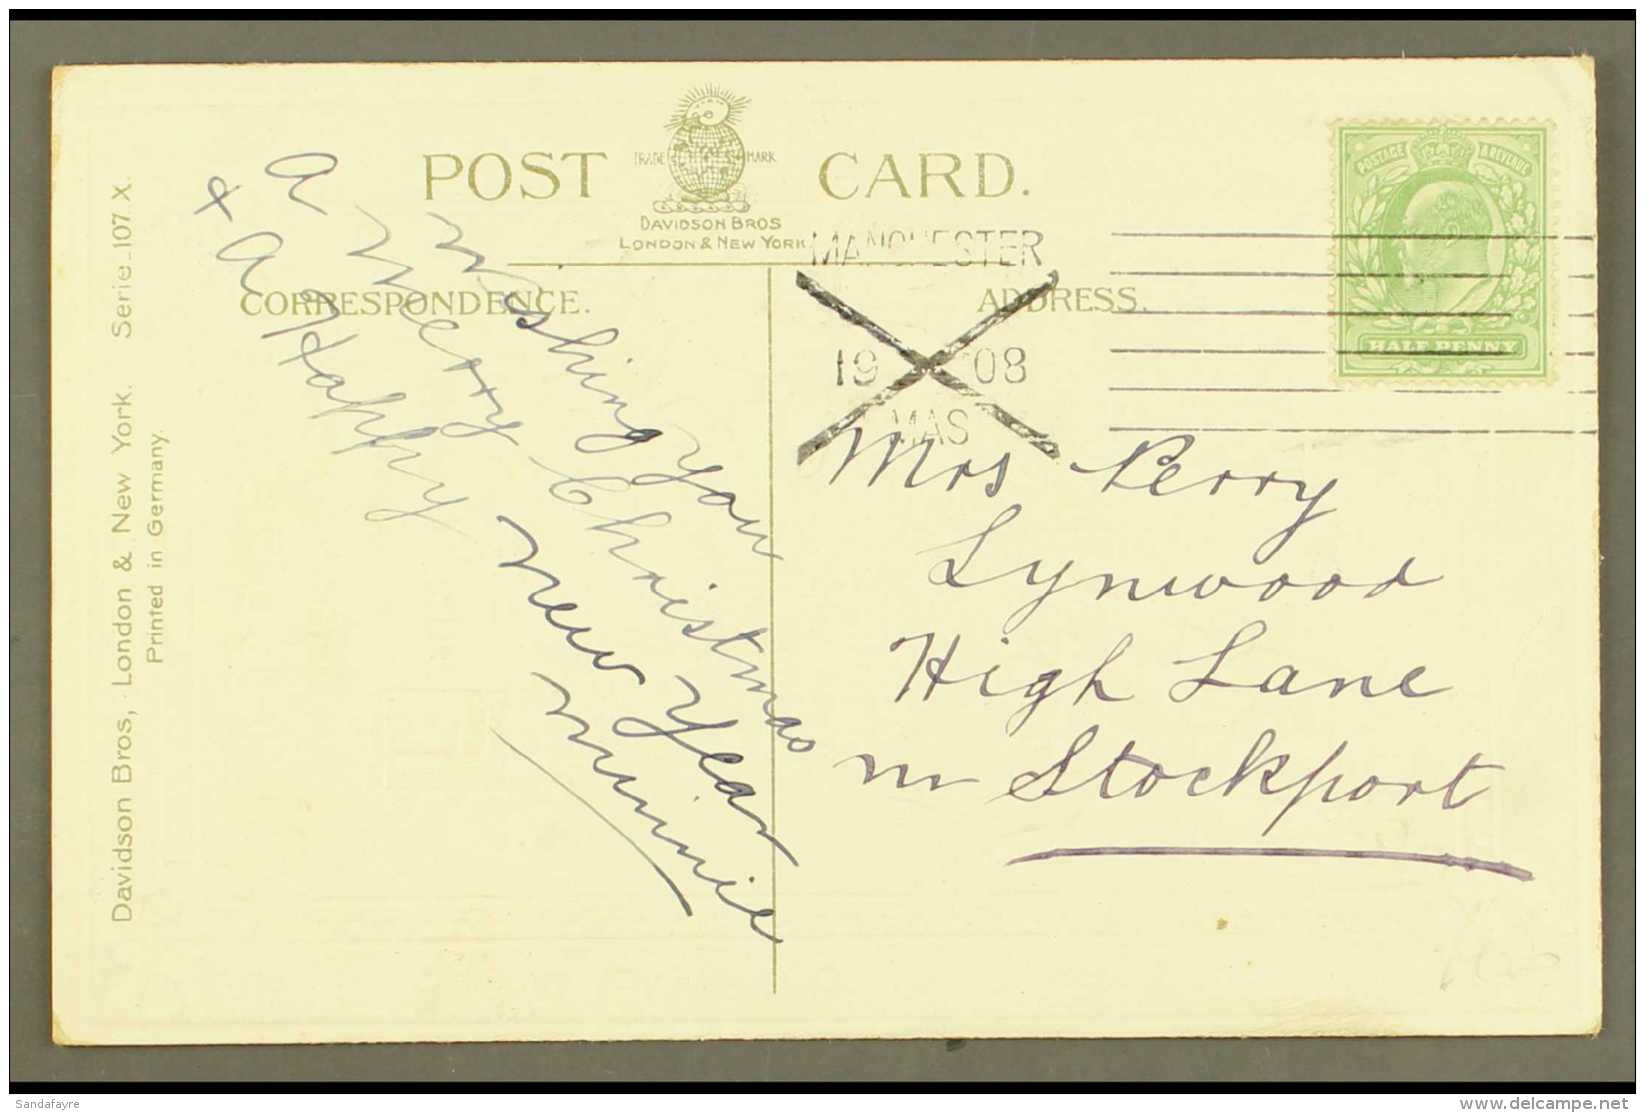 POST CARD.
TRADE MARK
DAVIDSON BROS
LONDON & NEW YORK
CORRESPONDENCE.
ADDRESS.
POSTAGE & REVENUE
HALF PENNY
MANCHESTER
19 08
MAS
Wishing you
a Merry Christmas
& A Happy New Year
Minnie
Mrs Perry
Lynwood
High Lane
nr Stockport
Davidson Bros, London & New York. Serie 107 X.
Printed in Germany.
Sandafayre
www.delcampe.net